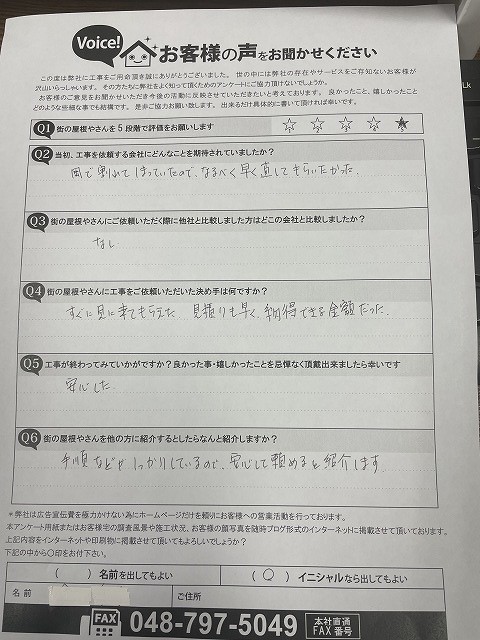 Voice!
お客様の声をお聞かせください
この度は弊社に工事をご用命頂き誠にありがとうございました。 世の中には弊社の存在やサービスをご存知ないお客様が
沢山いらっしゃいます。その方たちに弊社をよく知って頂くためのアンケートにご協力頂けないでしょうか。
お客様のご意見をお聞かせいただき今後の活動に反映させていただきたいと考えております。良かったこと、嬉しかったこと
どのような些細な事でも結構です。 是非ご協力お願い致します。 出来るだけ具体的に書いて頂ければ幸いです。
Q1 街の屋根やさんを5段階で評価をお願いします
Q2 当初、工事を依頼する会社にどんなことを期待されていましたか?
雨で割れてしまっていたので、なるべく早く直してもらいたかった.
Q3 街の屋根やさんにご依頼いただく際に他社と比較しました方はどこの会社と比較しましたか?
なし
Q4 街の屋根やさんに工事をご依頼いただいた決め手は何ですか?
すぐに見に来てもらえた. 見積りも早く、納得できる金額だった.
Q5 工事が終わってみていかがですか?良かった事・嬉しかったことを忌憚なく頂戴出来ましたら幸いです
安心した.
Q6 街の屋根やさんを他の方に紹介するとしたらなんと紹介しますか?
手順などがしっかりしているので、安心して頼めると紹介します.
*弊社は広告宣伝費を極力かけない為にホームページだけを頼りにお客様への営業活動を行っております。
本アンケート用紙またはお客様宅の調査風景や施工状況、お客様の顔写真を随時ブログ形式のインターネットに掲載させて頂いております。
上記内容をインターネットや印刷物に掲載させて頂いてもよろしいでしょうか?
下記の中から○印をお付下さい。
( ) 名前を出してもよい
( ○ ) イニシャルなら出してもよい
名前
ご住所
FAX 048-797-5049 本社直通 FAX番号